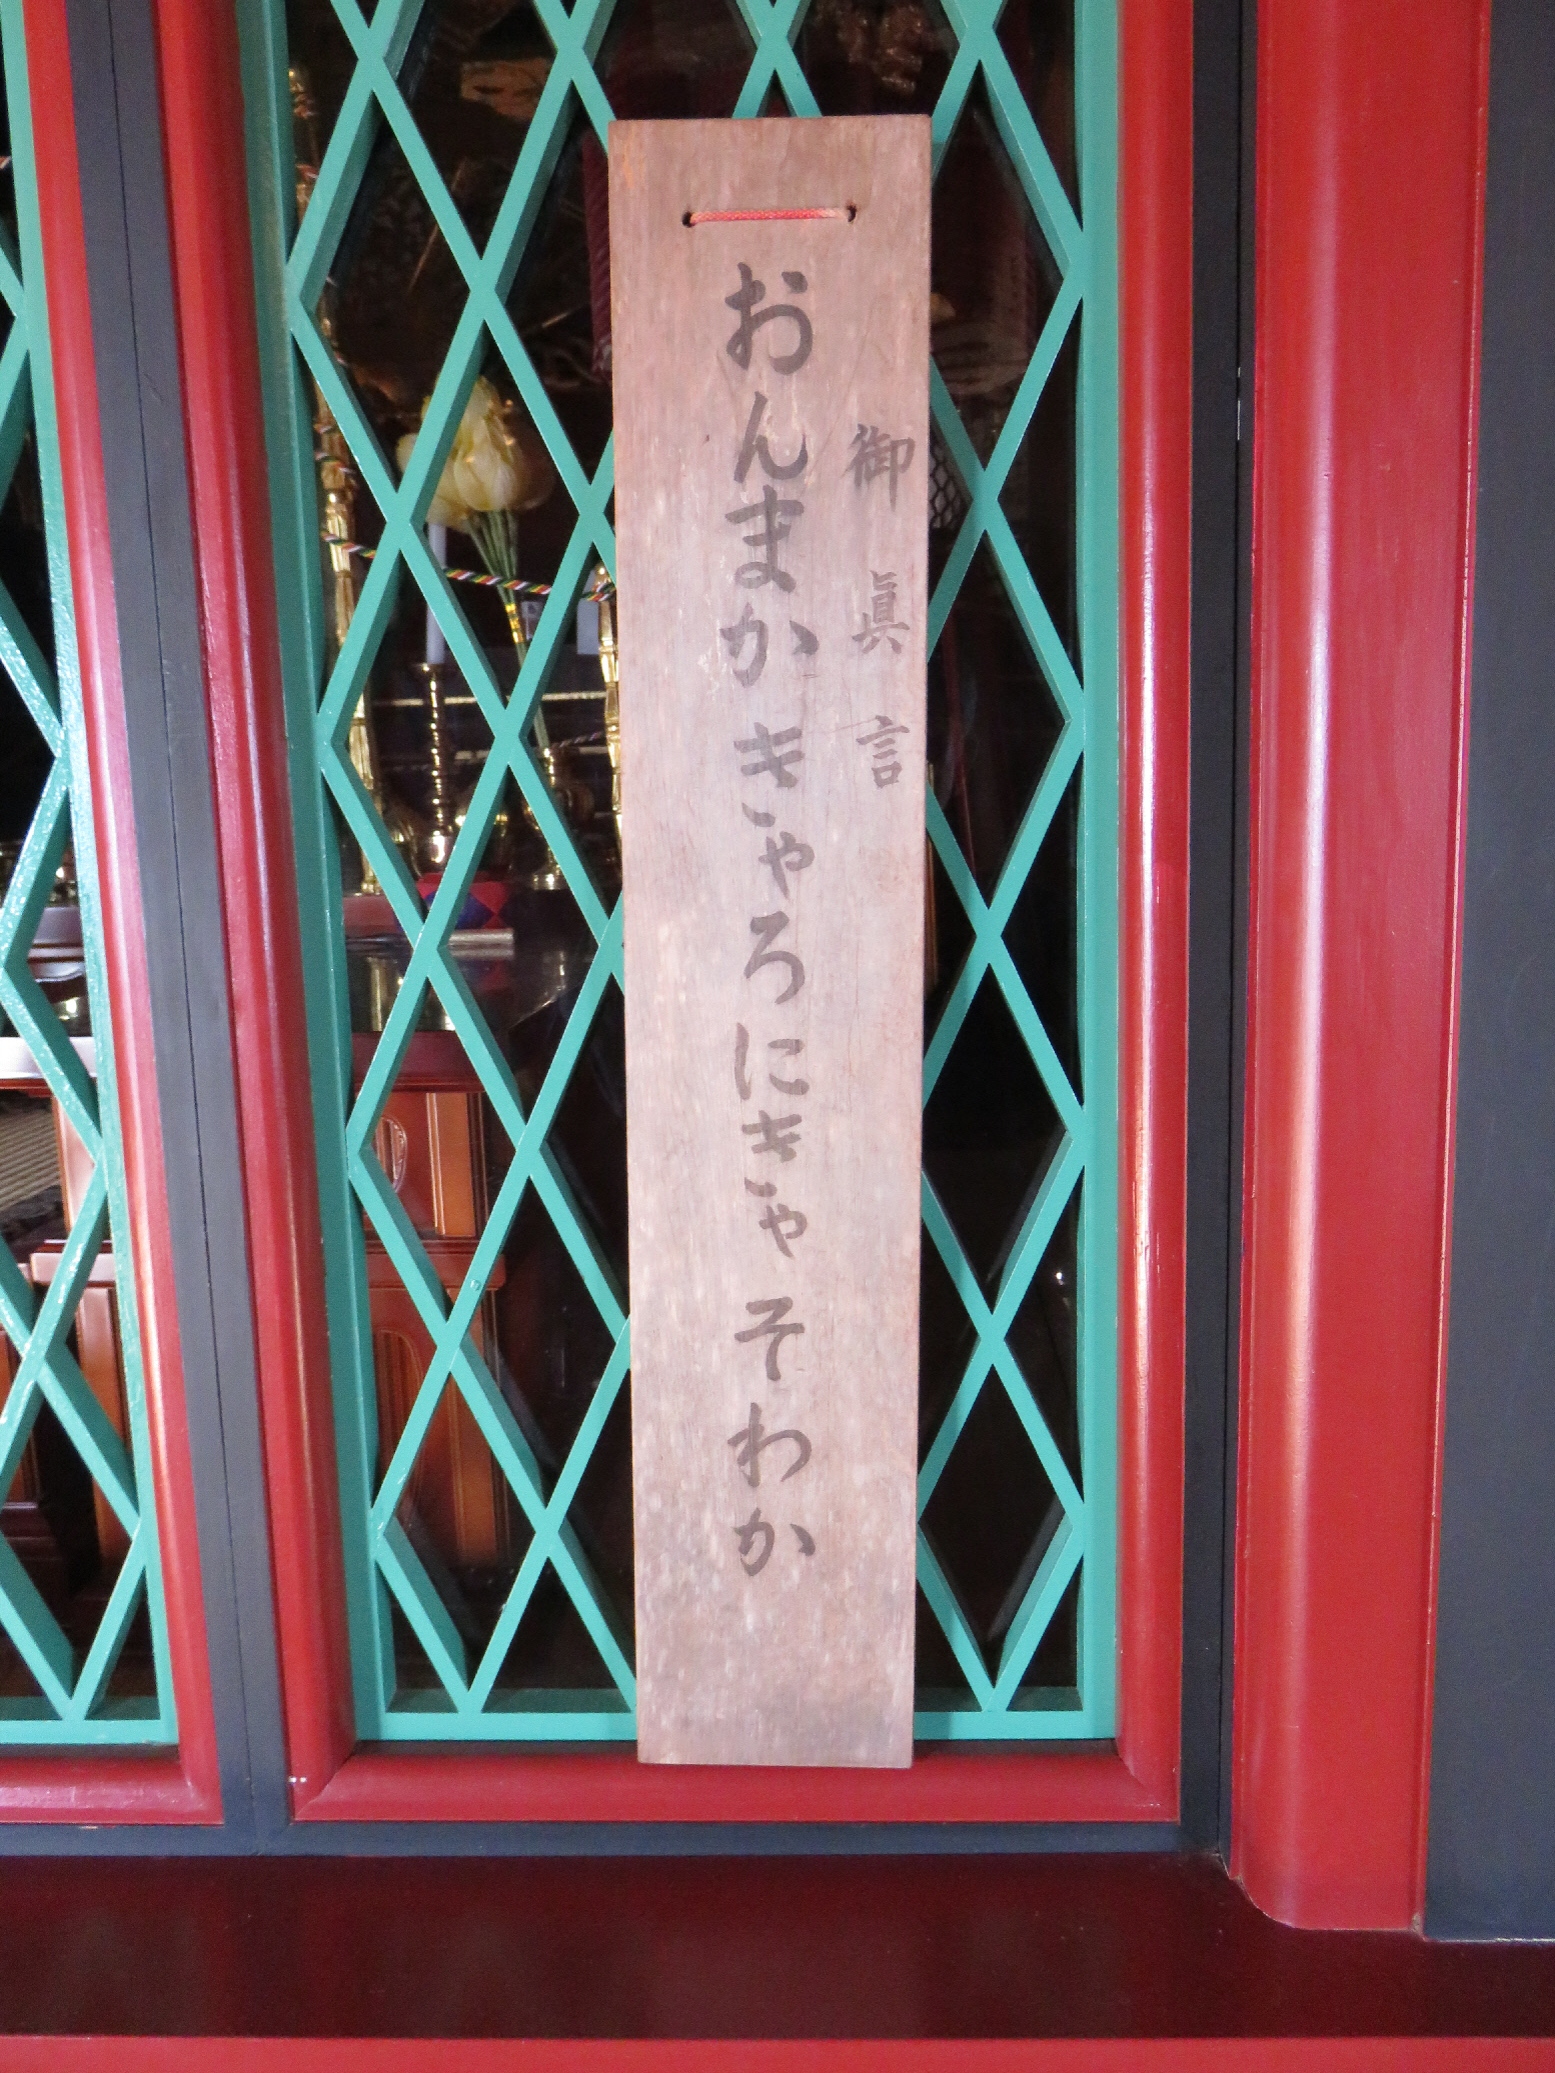 御眞言
おんまか きゃろにきゃ そわか